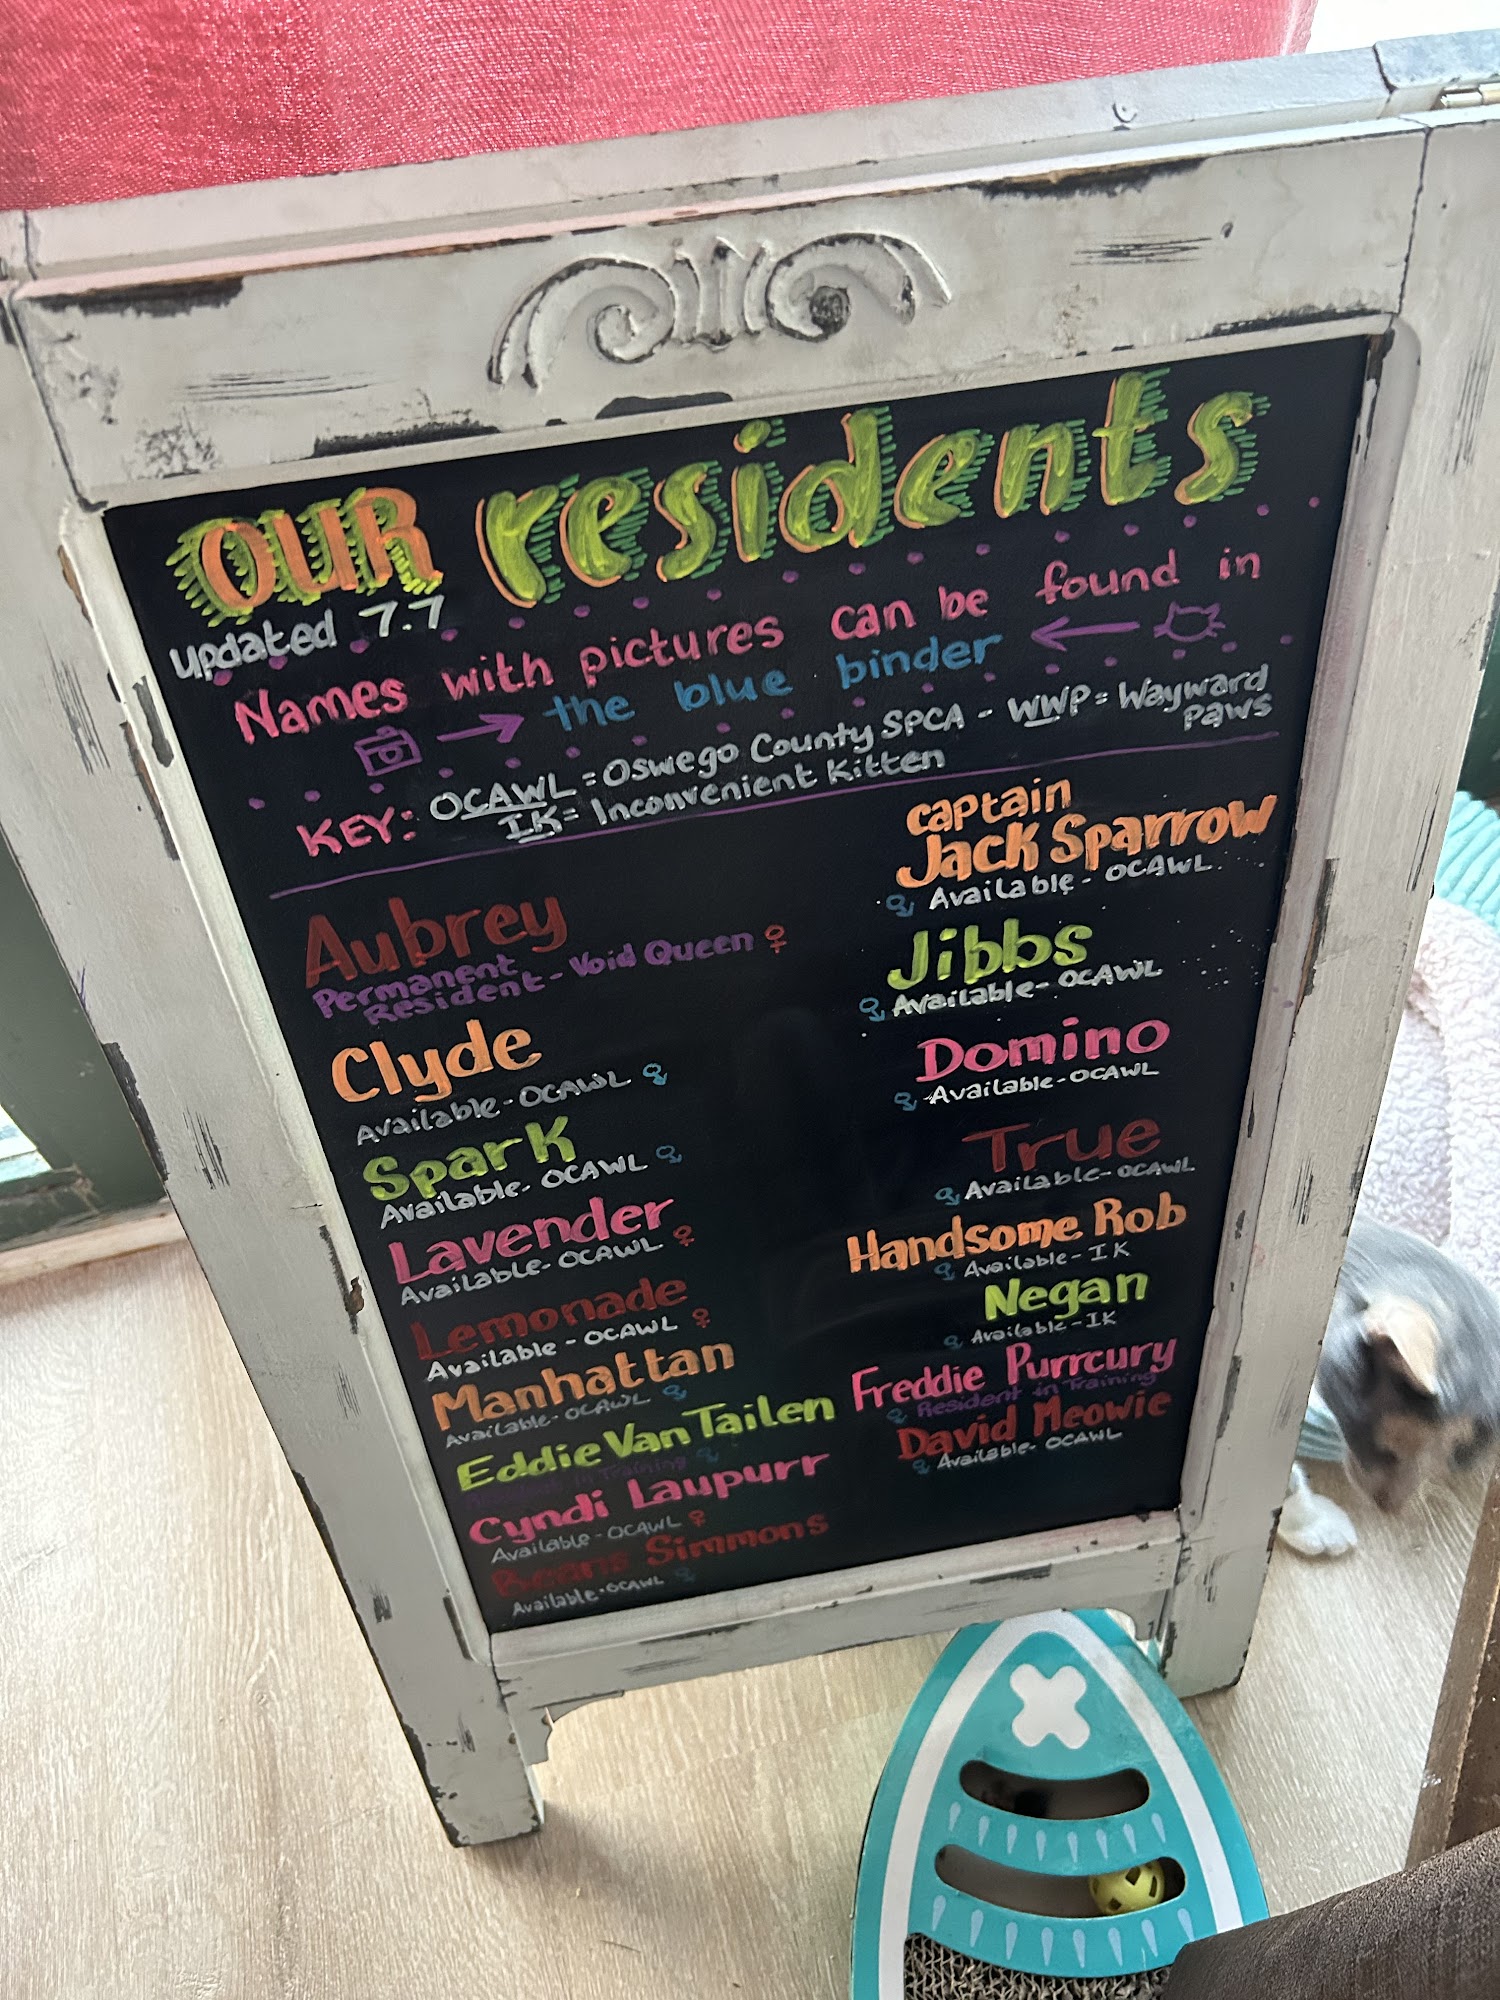 OUR residents
updated 7.7
Names with pictures can be found in
the blue binder
KEY: OCAWL = Oswego County SPCA - WWP = Wayward Paws
IK = Inconvenient Kitten
Aubrey
Permanent
Resident - Void Queen ♀
Clyde
Available - OCAWL ♂
Spark
Available - OCAWL ♂
Lavender
Available - OCAWL ♀
Lemonade
Available - OCAWL ♀
Manhattan
Available - OCAWL ♂
Eddie Van Tailen
in Training ♂
Cyndi Laupurr
Available - OCAWL ♀
Beans Simmons
Available - OCAWL ♂
captain
Jack Sparrow
♂ Available - OCAWL
Jibbs
♂ Available - OCAWL
Domino
♂ Available - OCAWL
True
♂ Available - OCAWL
Handsome Rob
♂ Available - IK
Negan
♂ Available - IK
Freddie Purrcury
♂ Resident in Training
David Meowie
♂ Available - OCAWL